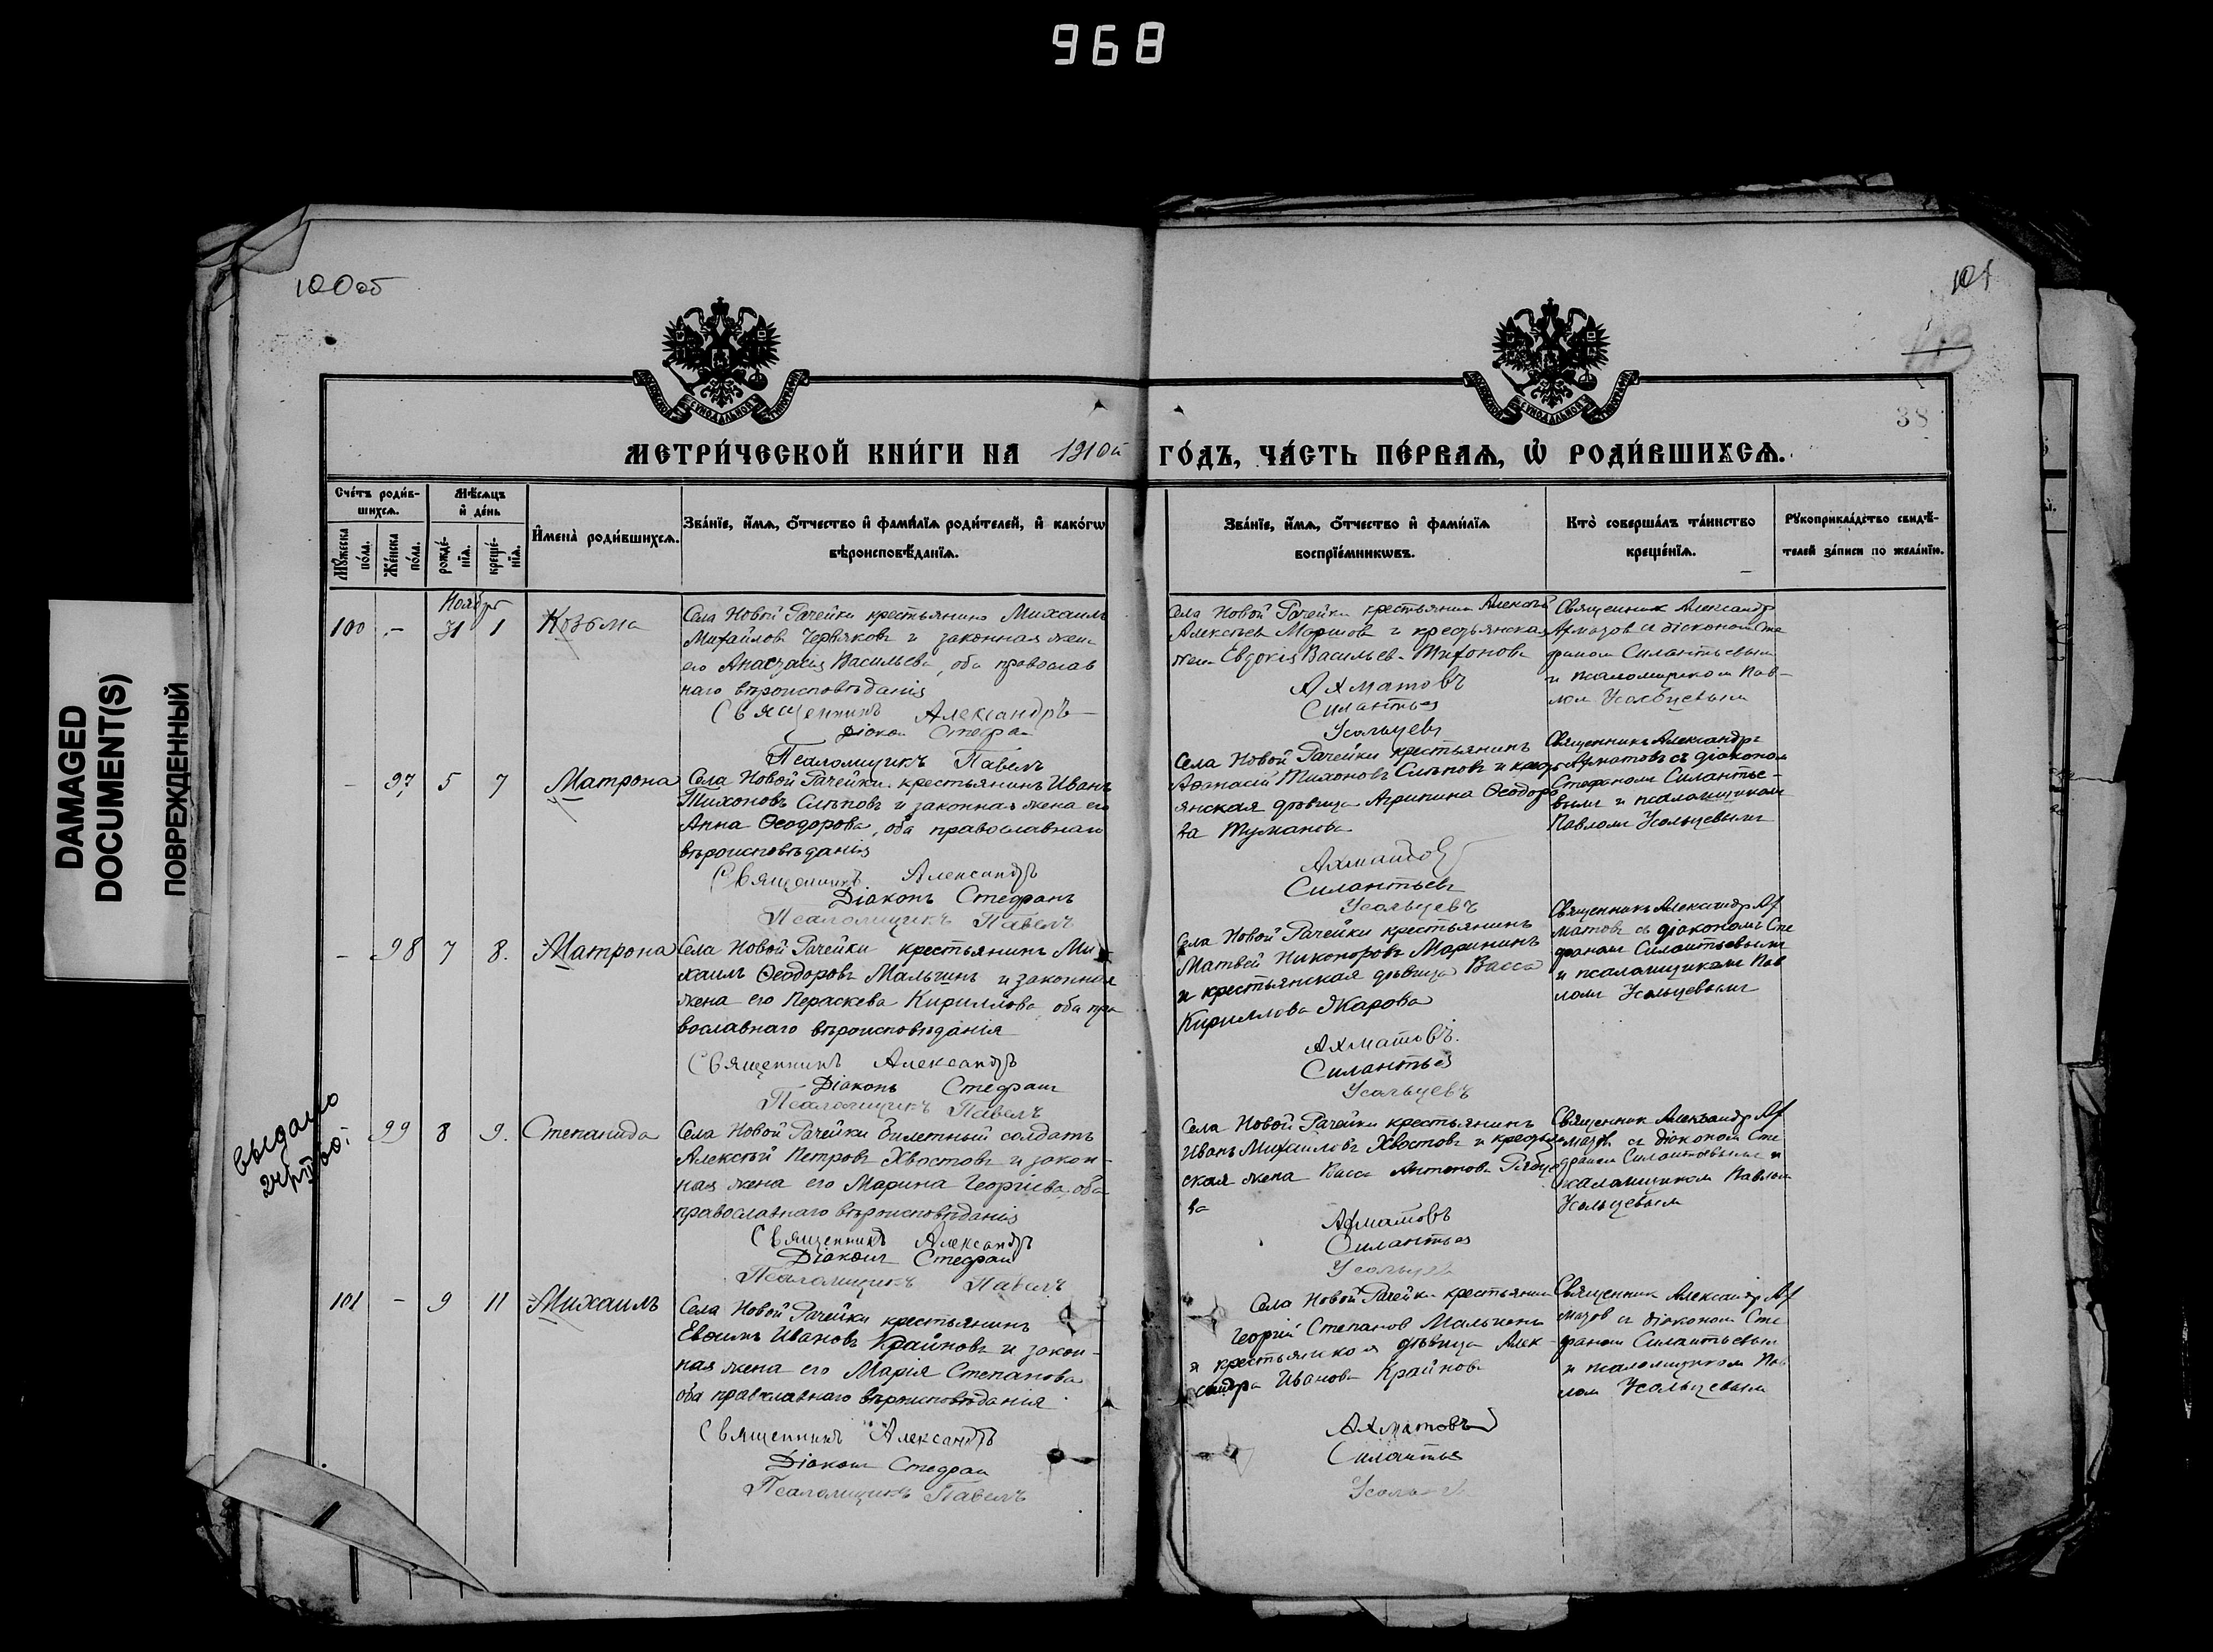 968
DAMAGED
DOCUMENT(S)
ПОВРЕЖДЕННЫЙ
100об
101
38
МЕТРИ́ЧЕСКОЙ КНИ́ГИ НА 1910й ГО́ДЪ, ЧА́СТЬ ПЕ́РВАѦ, Ѡ҆ РОДИ́ВШИХСѦ.
Сче́тъ роди́в-
шихсѧ.
Мꙋ́жеска по́ла.
Же́нска по́ла.
Мѣ́сѧцъ
и҆ де́нь
рожде́-
нїѧ.
креще́-
нїѧ.
И҆мена̀ роди́вшихсѧ.
Зва́нїе, и҆́мѧ, ѻ҆́тчество и҆ фами́лїѧ роди́телей, и҆ како́гѡ
вѣроисповѣ́данїѧ.
Зва́нїе, и҆́мѧ, ѻ҆́тчество и҆ фами́лїѧ
воспрїе́мникѡвъ.
Кто̀ соверша́лъ та́инство
креще́нїѧ.
Рꙋкоприкла́дство свидѣ́-
телей за́писи по жела́нїю.
Ноябрь
100 - 31 1 Козьма
Села Новой Рачейки крестьянинъ Михаилъ
Михайловъ Червяковъ и законная жена
его Анастасия Васильева, оба православ
наго вѣроисповѣданія
Священникъ Александръ
Діакон Стефан
Псаломщикъ Павелъ
Села Новой Рачейки крестьянин Алексей
Алексѣев и крестьянская
жена Евдокия Васильева Тихонова
Ахматовъ
Силантьев
Усольцевъ
Священник Александр
Ахматов съ діаконом Сте
фаном Силантьевым
и псаломщиком Пав-
лом Усольцевым
- 97 5 7 Матрона
Села Новой Рачейки крестьянинъ Иванъ
Тихоновъ Слѣповъ и законная жена его
Анна Ѳеодорова, оба православнаго
вѣроисповѣданія
Священникъ Александръ
Діаконъ Стефанъ
Псаломщикъ Павелъ
Села Новой Рачейки крестьянинъ
Тихоновъ Слѣповъ и кресть
янская дѣвица Агрипина Ѳеодоро
ва Туманова
Ахматовъ
Силантьевъ
Усольцевъ
Священникъ Александръ
Ахматовъ съ діакономъ
Стефаномъ Силантье-
вымъ и псаломщикомъ
Павломъ Усольцевымъ
- 98 7 8. Матрона
Села Новой Рачейки крестьянинъ Ми
хаилъ Ѳеодоровъ Мальчинъ и законная
жена его Параскева Кириллова оба пра
вославнаго вѣроисповѣданія
Священникъ Александръ
Діаконъ Стефанъ
Псаломщикъ Павелъ
Села Новой Рачейки крестьянинъ
Матвей Никоноровъ Марининъ
и крестьянская дѣвица Васса
Кириллова Жарова
Ахматовъ.
Силантьев
Усольцевъ
Священникъ Александр Ах
матовъ съ діакономъ Сте
фаном Силантьевымъ
и псаломщикомъ Пав
ломъ Усольцевымъ
выдано
99 8 9. Степанида
Села Новой Рачейки билетный солдатъ
Алексѣй Петровъ Хвостовъ и закон-
ная жена его Марина Георгіева, оба
православнаго вѣроисповѣданія
Священникъ Александръ
Діаконъ Стефан
Псаломщикъ Павелъ
Села Новой Рачейки крестьянинъ
Иванъ Михаиловъ Хвостовъ и крестьян
ская жена Васса Антонова
ва
Ахматовъ
Силантьев
Усольцев
Священник Александр Ах
матов съ діаконом Сте
фаном Силантьевым и
псаломщиком Павлом
Усольцевым
101 - 9 11 Михаилъ
Села Новой Рачейки крестьянинъ
Евѳимъ Ивановъ Крайновъ и закон-
ная жена его Марія Степанова
оба православнаго вѣроисповѣданія
Священникъ Александръ
Діакон Стефан
Псаломщикъ Павелъ
Села Новой Рачейки крестьянин
Георгій Степанов
и крестьянская дѣвица Алек-
сандра Иванова Крайнова
Ахматовъ
Силантьев
Священник Александр Ах
матов съ діаконом Сте
фаном Силантьевым
и псаломщиком Пав
лом Усольцевым